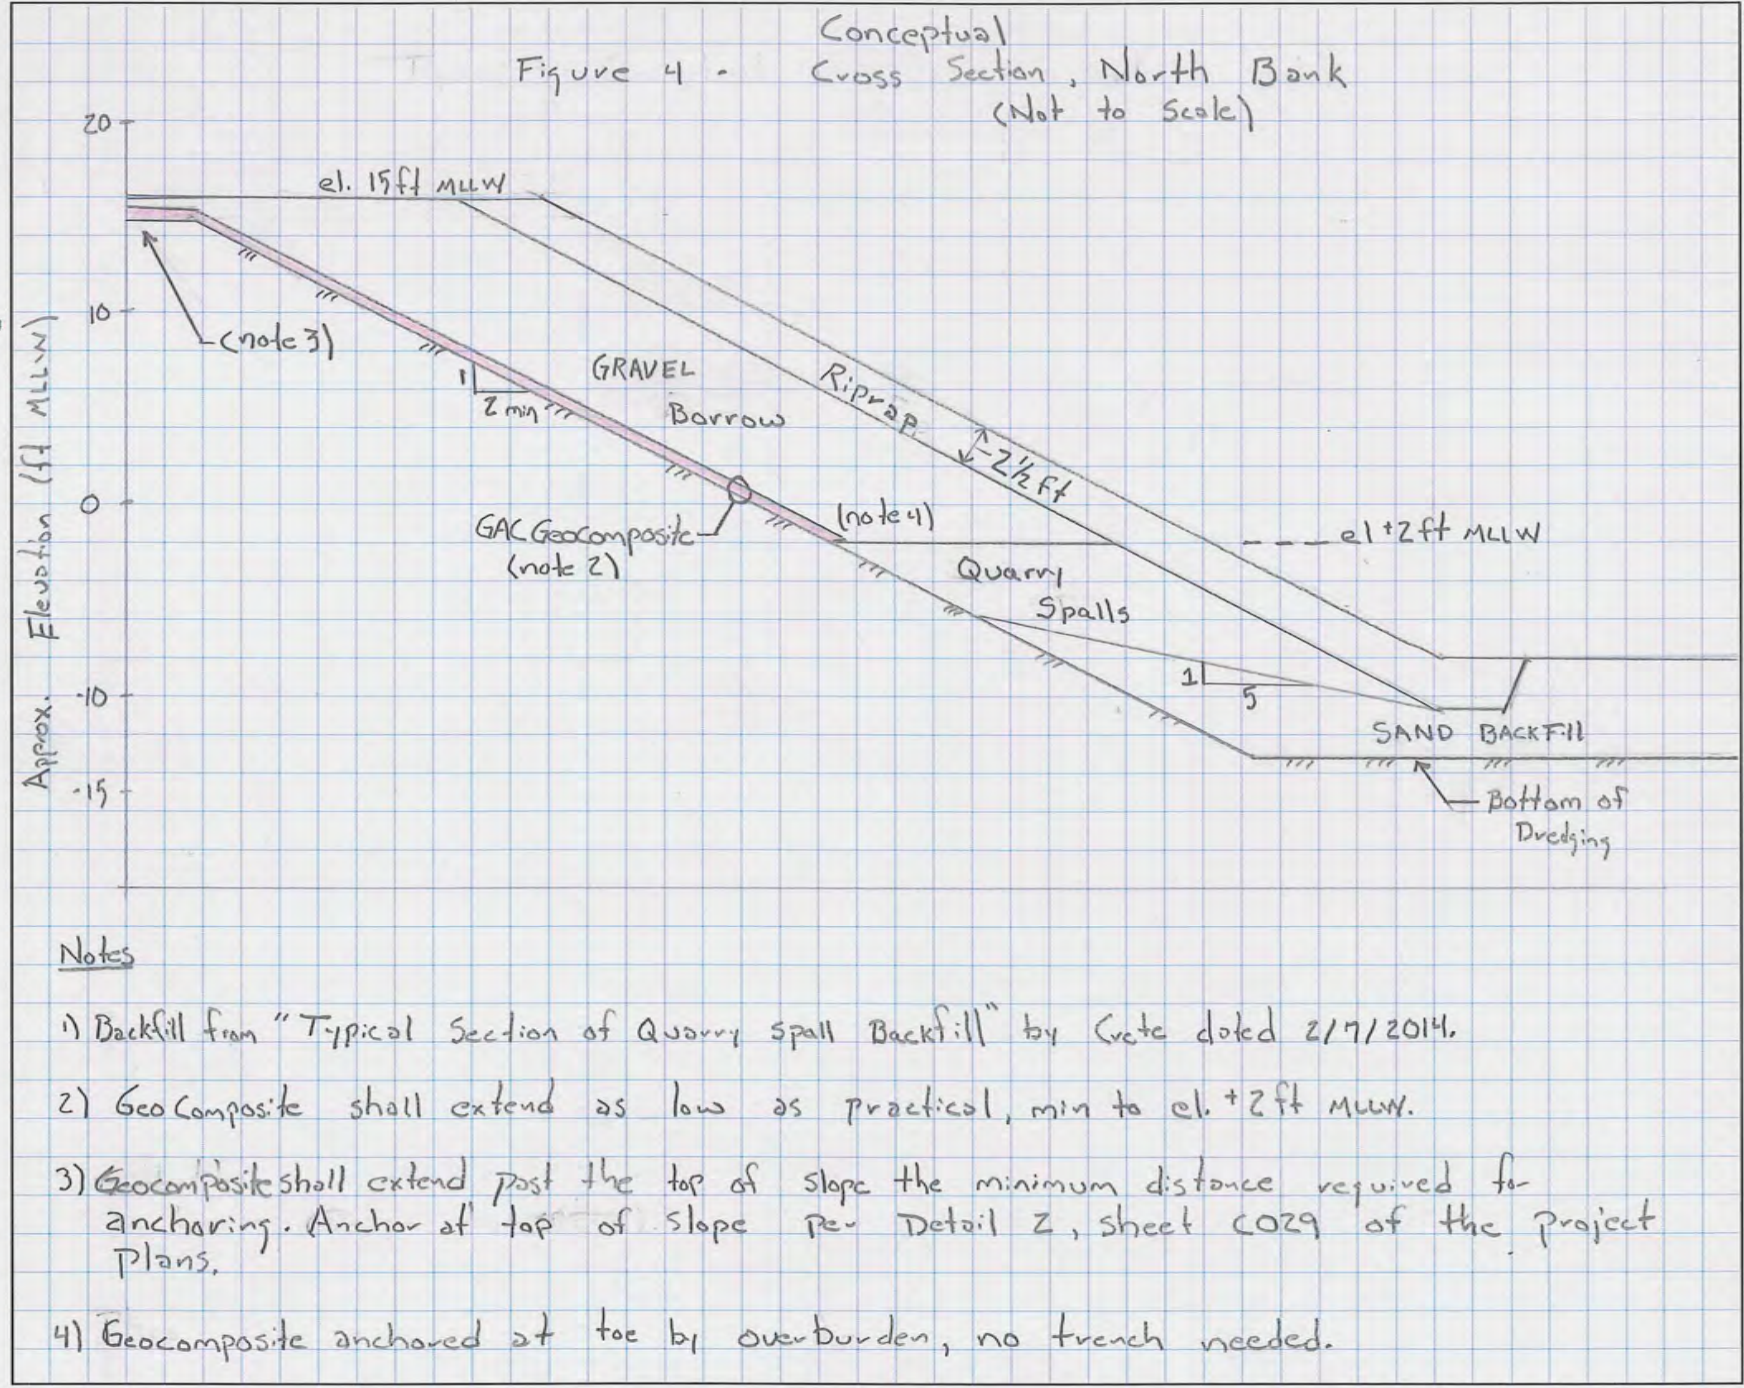 Conceptual
Figure 4 - Cross Section, North Bank
(Not to Scale)
20
el. 15ft MLLW
10
(note 3)
1
2 min
GRAVEL
Borrow
Riprap
~2½ ft
0
Approx. Elevation (ft MLLW)
GAC Geocomposite
(note 2)
(note 4)
el +2 ft MLLW
Quarry
Spalls
-10
1
5
SAND BACKFill
-15
Bottom of
Dredging
Notes
1) Backfill from "Typical Section of Quarry Spall Backfill" by Crete dated 2/7/2014.
2) GeoComposite shall extend as low as practical, min to el. +2 ft MLLW.
3) Geocomposite shall extend past the top of slope the minimum distance required for
anchoring. Anchor at top of slope per Detail 2, sheet C029 of the project
plans.
4) Geocomposite anchored at toe by overburden, no trench needed.